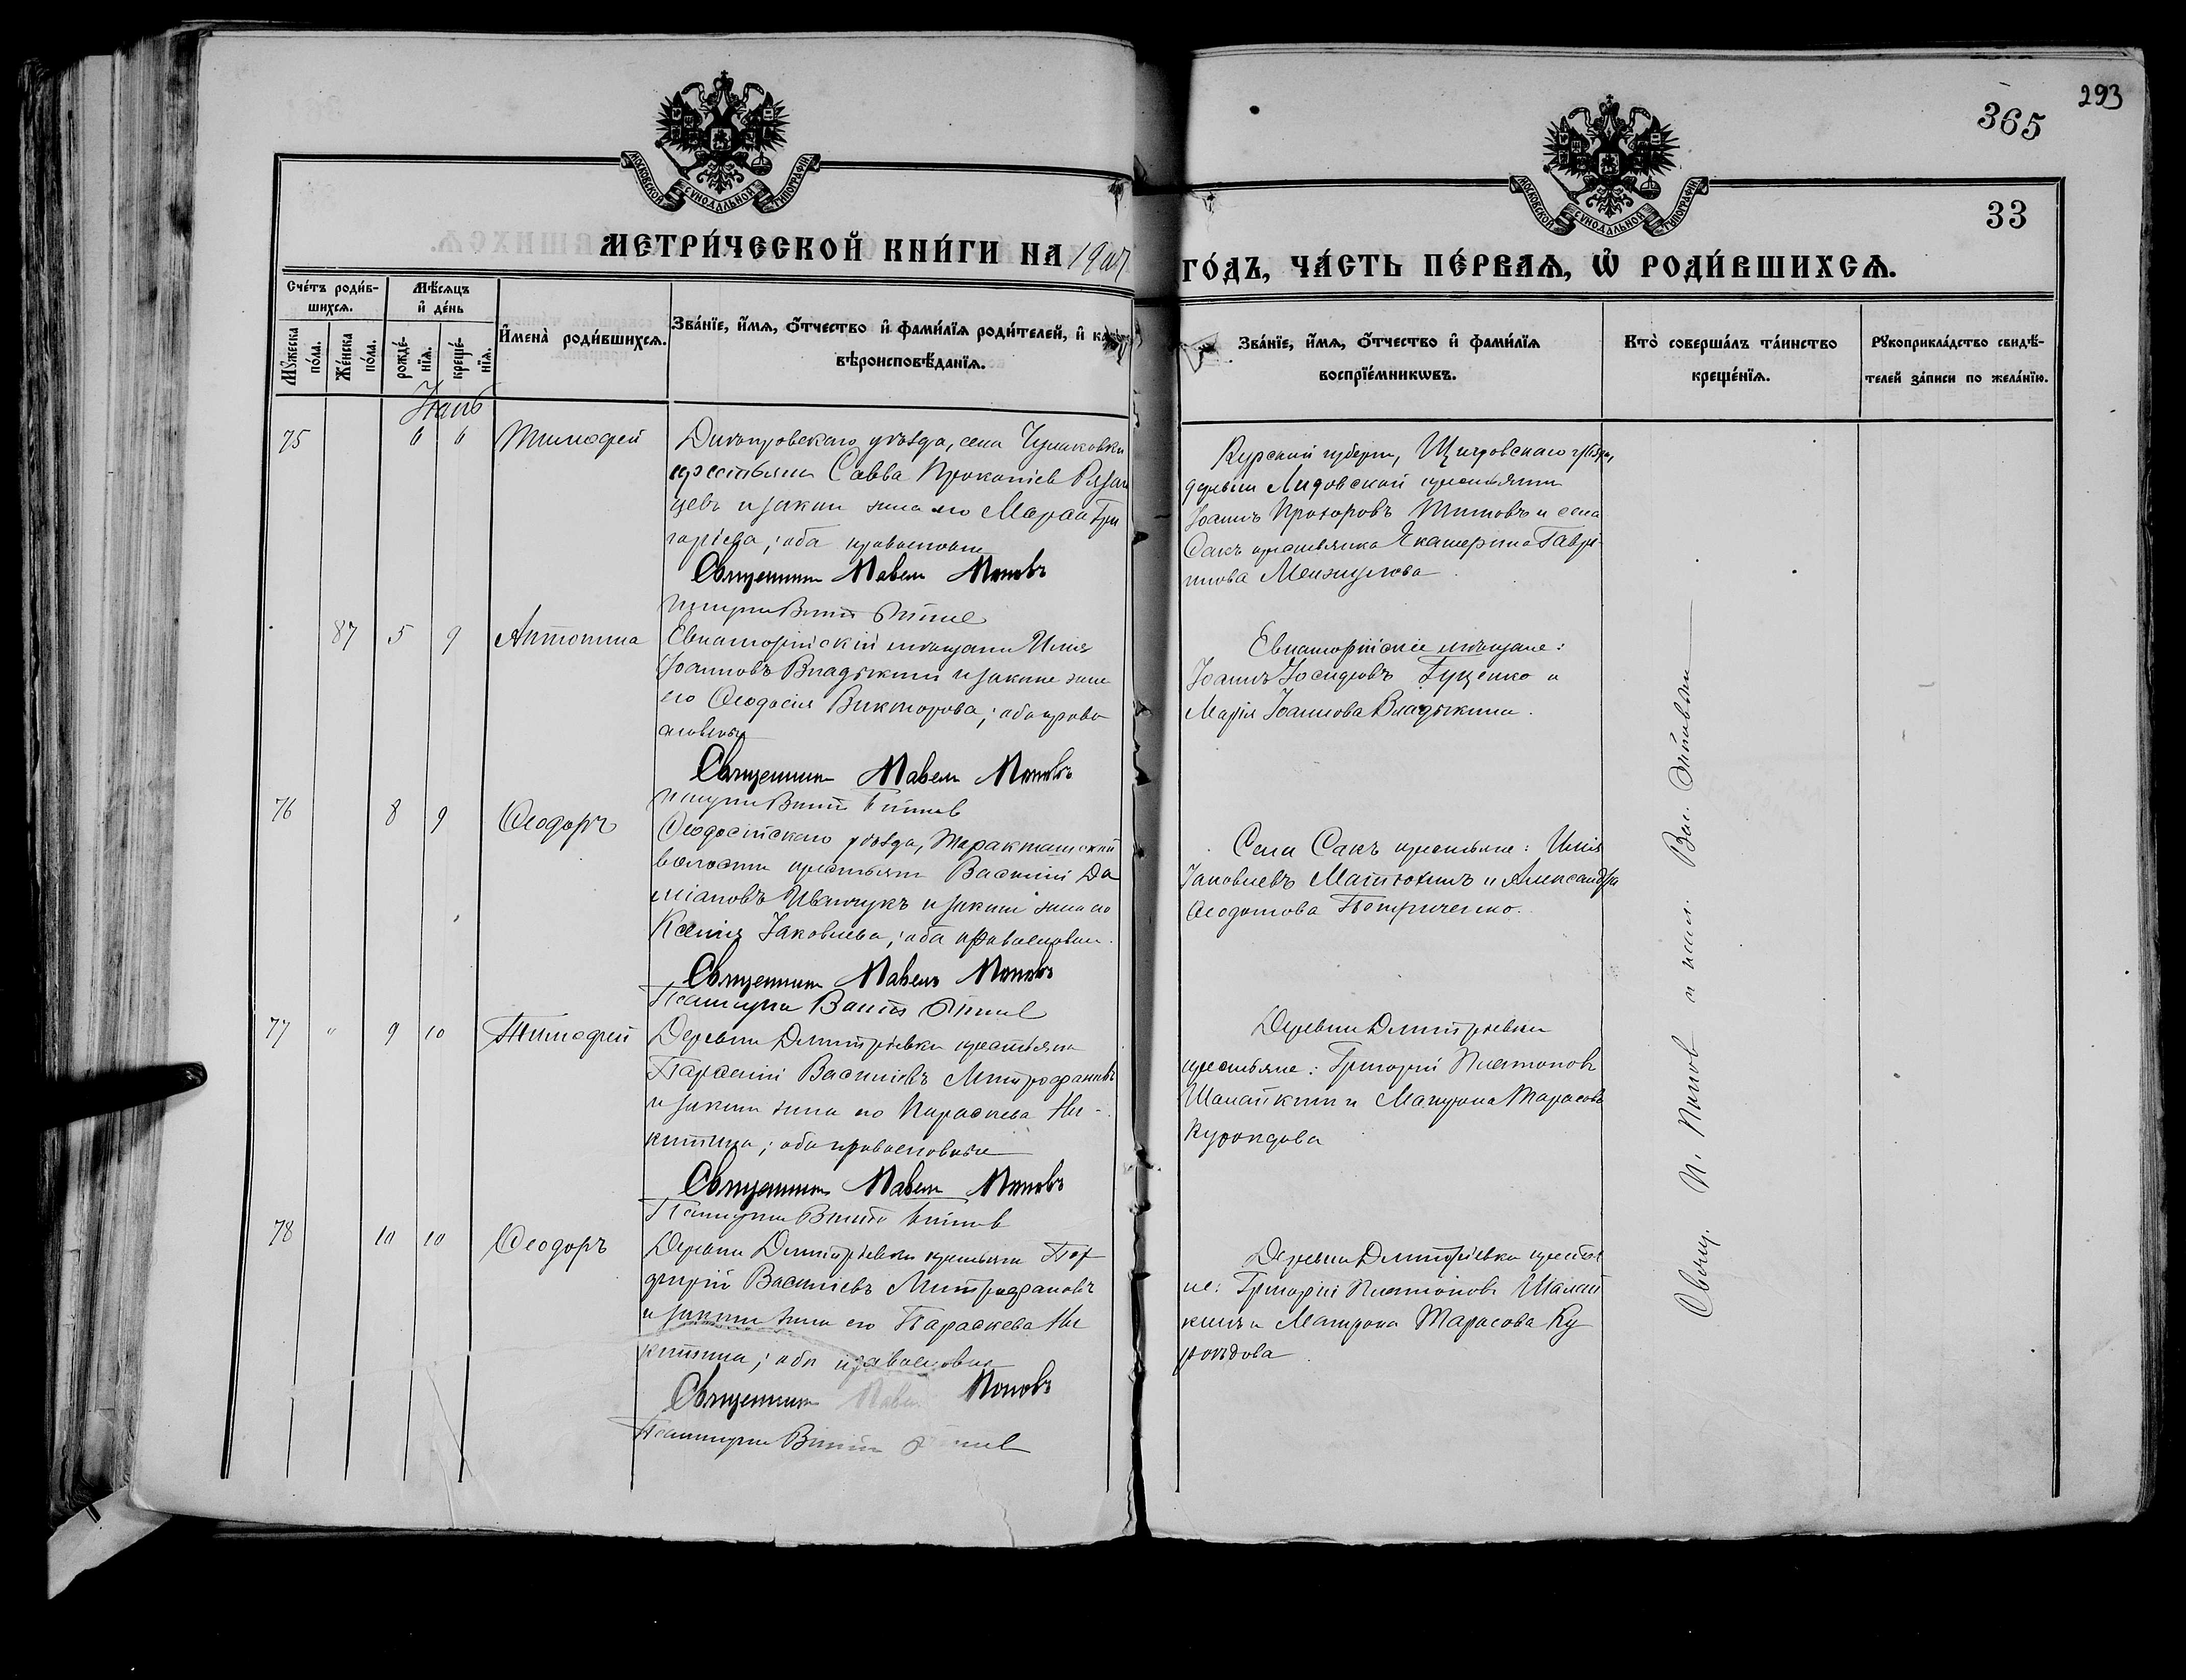 293
365
33
МОСКОВСКОЙ СѴНОДАЛЬНОЙ ТИПОГРАФІИ
МОСКОВСКОЙ СѴНОДАЛЬНОЙ ТИПОГРАФІИ
МЕТРИ́ЧЕСКОЙ КНИ́ГИ НА 1907
ГО́ДЪ, ЧА́СТЬ ПЕ́РВАЯ, Ѡ҆ РОДИ́ВШИХСЯ.
Сче́тъ роди́в-
шихся.
Мꙋ́жеска по́ла.
Же́нска по́ла.
Мѣ́сяцъ
и҆ де́нь
рожде́-
нїя.
креще́-
нїя.
И҆мена̀ роди́вшихся.
Зва́нїе, и҆́мя, ѻ҆́тчество и҆ фами́лїя роди́телей, и҆
вѣроисповѣ́данїя.
Зва́нїе, и҆́мя, ѻ҆́тчество и҆ фами́лїя
воспрїе́мникѡвъ.
Кто̀ соверша́лъ та́инство
креще́нїя.
Рꙋкоприкла́дство свидѣ́-
телей за́писи по жела́нїю.
75
6 6
Тимофей
Днѣпровскаго уѣзда, села Чулаковки
крестьянинъ Савва Прокопіевъ Рязан
цевъ и законная жена его Марѳа Гри
горіева; оба православные
Священникъ Павелъ Поповъ
Курской губерніи, Щигровскаго уѣзда,
деревни крестьянинъ
Іоаннъ Прохоровъ Титовъ и села
Сакъ крестьянка Екатерина Гаври-
лова
87 5 9
Антонина
Евпаторійскій мѣщанинъ Илія
Іоанновъ Владыкинъ и законная жена
его Ѳеодосія Викторова; оба право
славные
Священникъ Павелъ Поповъ
Евпаторійскіе мѣщане:
Іоаннъ Іосифовъ Гуценко и
Марія Іоаннова Владыкина.
76
8 9
Ѳеодоръ
Ѳеодосійскаго уѣзда, Таракташской
волости крестьянинъ Василій Да
міановъ Иванчукъ и законная жена его
Ксенія Іаковлева; оба православные.
Священникъ Павелъ Поповъ
Села Сакъ крестьяне: Илія
Іаковлевъ Матюхинъ и Александра
Ѳеодотова Петриченко.
77 " 9 10
Тимофей
Деревни Димитріевки крестьянинъ
Василіевъ Митрофановъ
и законная жена его Параскева Ни-
китина; оба православные
Священникъ Павелъ Поповъ
Деревни Димитріевки
крестьяне: Григорій Платоновъ
Шалайкинъ и Матрона Тарасова
78
10 10
Ѳеодоръ
Деревни Димитріевки крестьянинъ Пор
фирій Василіевъ Митрофановъ
и законная жена его Параскева Ни
китина; оба православные
Священникъ Павелъ Поповъ
Деревни Димитріевки крестья
не: Григорій Платоновъ Шалай
кинъ и Матрона Тарасова
Свящ. П. Поповъ и псал. Вас.